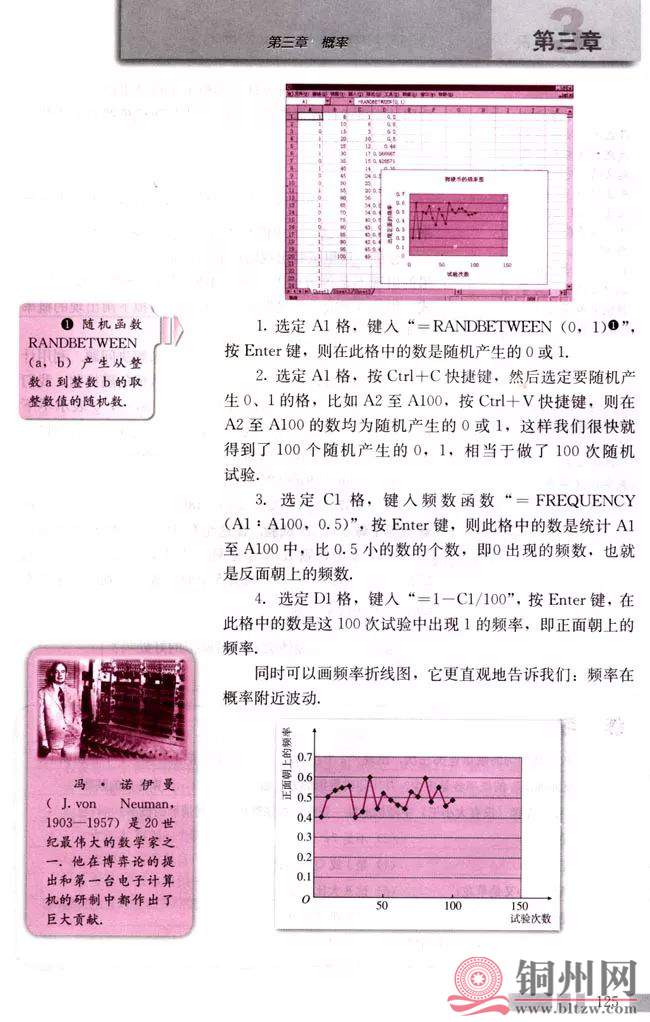 第三章 概率
第三章
A1
=RANDBETWEEN(0,1)
掷硬币的频率图
出现正面的频率
0.7
0.6
0.5
0.4
0.3
0.2
0.1
0
0 50 100 150
试验次数
❶ 随机函数
RANDBETWEEN
(a, b) 产生从整
数 a 到整数 b 的取
整数值的随机数.
1. 选定 A1 格，键入“=RANDBETWEEN（0，1）❶”，
按 Enter 键，则在此格中的数是随机产生的 0 或 1.
2. 选定 A1 格，按 Ctrl+C 快捷键，然后选定要随机产
生 0、1 的格，比如 A2 至 A100，按 Ctrl+V 快捷键，则在
A2 至 A100 的数均为随机产生的 0 或 1，这样我们很快就
得到了 100 个随机产生的 0，1，相当于做了 100 次随机
试验.
3. 选定 C1 格，键入频数函数“=FREQUENCY
（A1：A100，0.5）”，按 Enter 键，则此格中的数是统计 A1
至 A100 中，比 0.5 小的数的个数，即0 出现的频数，也就
是反面朝上的频数.
4. 选定 D1 格，键入“=1-C1/100”，按 Enter 键，在
此格中的数是这 100 次试验中出现 1 的频率，即正面朝上的
频率.
同时可以画频率折线图，它更直观地告诉我们：频率在
概率附近波动.
冯·诺伊曼
（J. von Neuman，
1903—1957）是 20 世
纪最伟大的数学家之
一. 他在博弈论的提
出和第一台电子计算
机的研制中都作出了
巨大贡献.
正面朝上的频率
0.7
0.6
0.5
0.4
0.3
0.2
0.1
O 50 100 150
试验次数
铜州网
www.bltzw.com
125